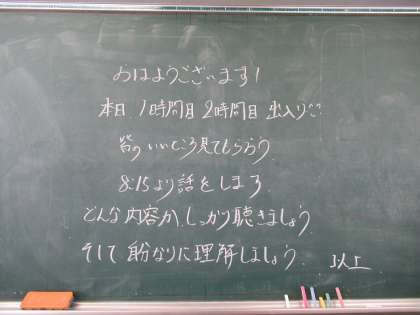 おはようございます!
本日 1時間目 2時間目 出入り
皆のいいところ見てもらおう
8:15より話をします
どんな内容か、しっかり聴きましょう
そして自分なりに理解しましょう. 以上